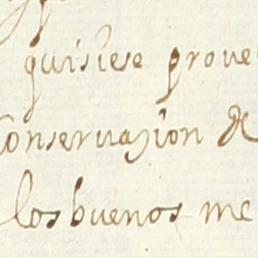 quisiese prove
conseruazion de
los buenos me